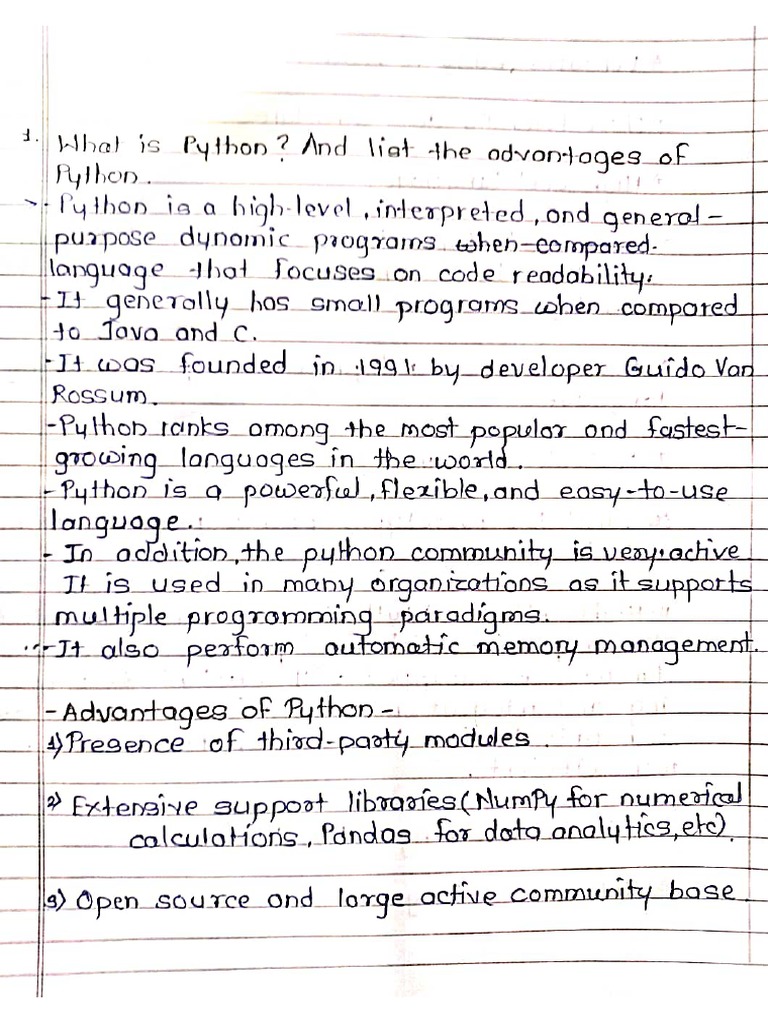 1. What is Python? And list the advantages of
Python.
- Python is a high-level, interpreted, and general-
purpose dynamic programs when compared.
language that focuses on code readability.
- It generally has small programs when compared
to Java and C.
- It was founded in 1991 by developer Guido Van
Rossum.
- Python ranks among the most popular and fastest-
growing languages in the world.
- Python is a powerful, flexible, and easy-to-use
language.
- In addition, the python community is very active
It is used in many organizations as it supports
multiple programming paradigms.
- It also perform automatic memory management.
- Advantages of Python -
1) Presence of third-party modules.
2) Extensive support libraries (NumPy for numerical
calculations, Pandas for data analytics, etc).
3) Open source and large active community base.